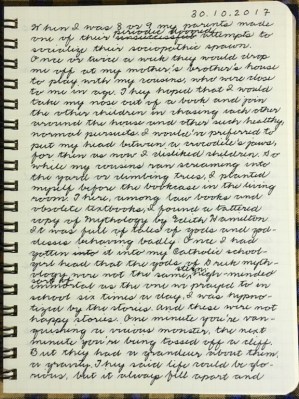 30.10.2017
When I was 8 or 9 my parents made
periodic doomed
one of their attempts to
socialize their sociopathic spawn.
Once or twice a week they would drop
me off at my mother's brother's house
to play with my cousins, who were close
to me in age. They hoped that I would
take my nose out of a book and join
the other children in chasing each other
around the house and other such healthy,
normal pursuits. I would've preferred to
put my head between a crocodile's jaws,
for then as now I disliked children. So
while my cousins ran screaming into
the yard or climbing trees, I planted
myself before the bookcase in the living
room. There, among law books and
obsolete textbooks, I found a tattered
copy of Mythology by Edith Hamilton.
It was full of tales of gods and god-
desses behaving badly. Once I had
gotten it into my Catholic school-
girl head that the gods of Greek myth-
ology were not the same high-minded
immortal as the one we prayed to in
school six times a day, I was hypno-
tized by the stories. And these were not
happy stories. One minute you're van-
quishing a vicious monster, the next
minute you're being tossed off a cliff.
But they had a grandeur about them,
a gravity. They said life could be glo-
rious, but it always fell apart and